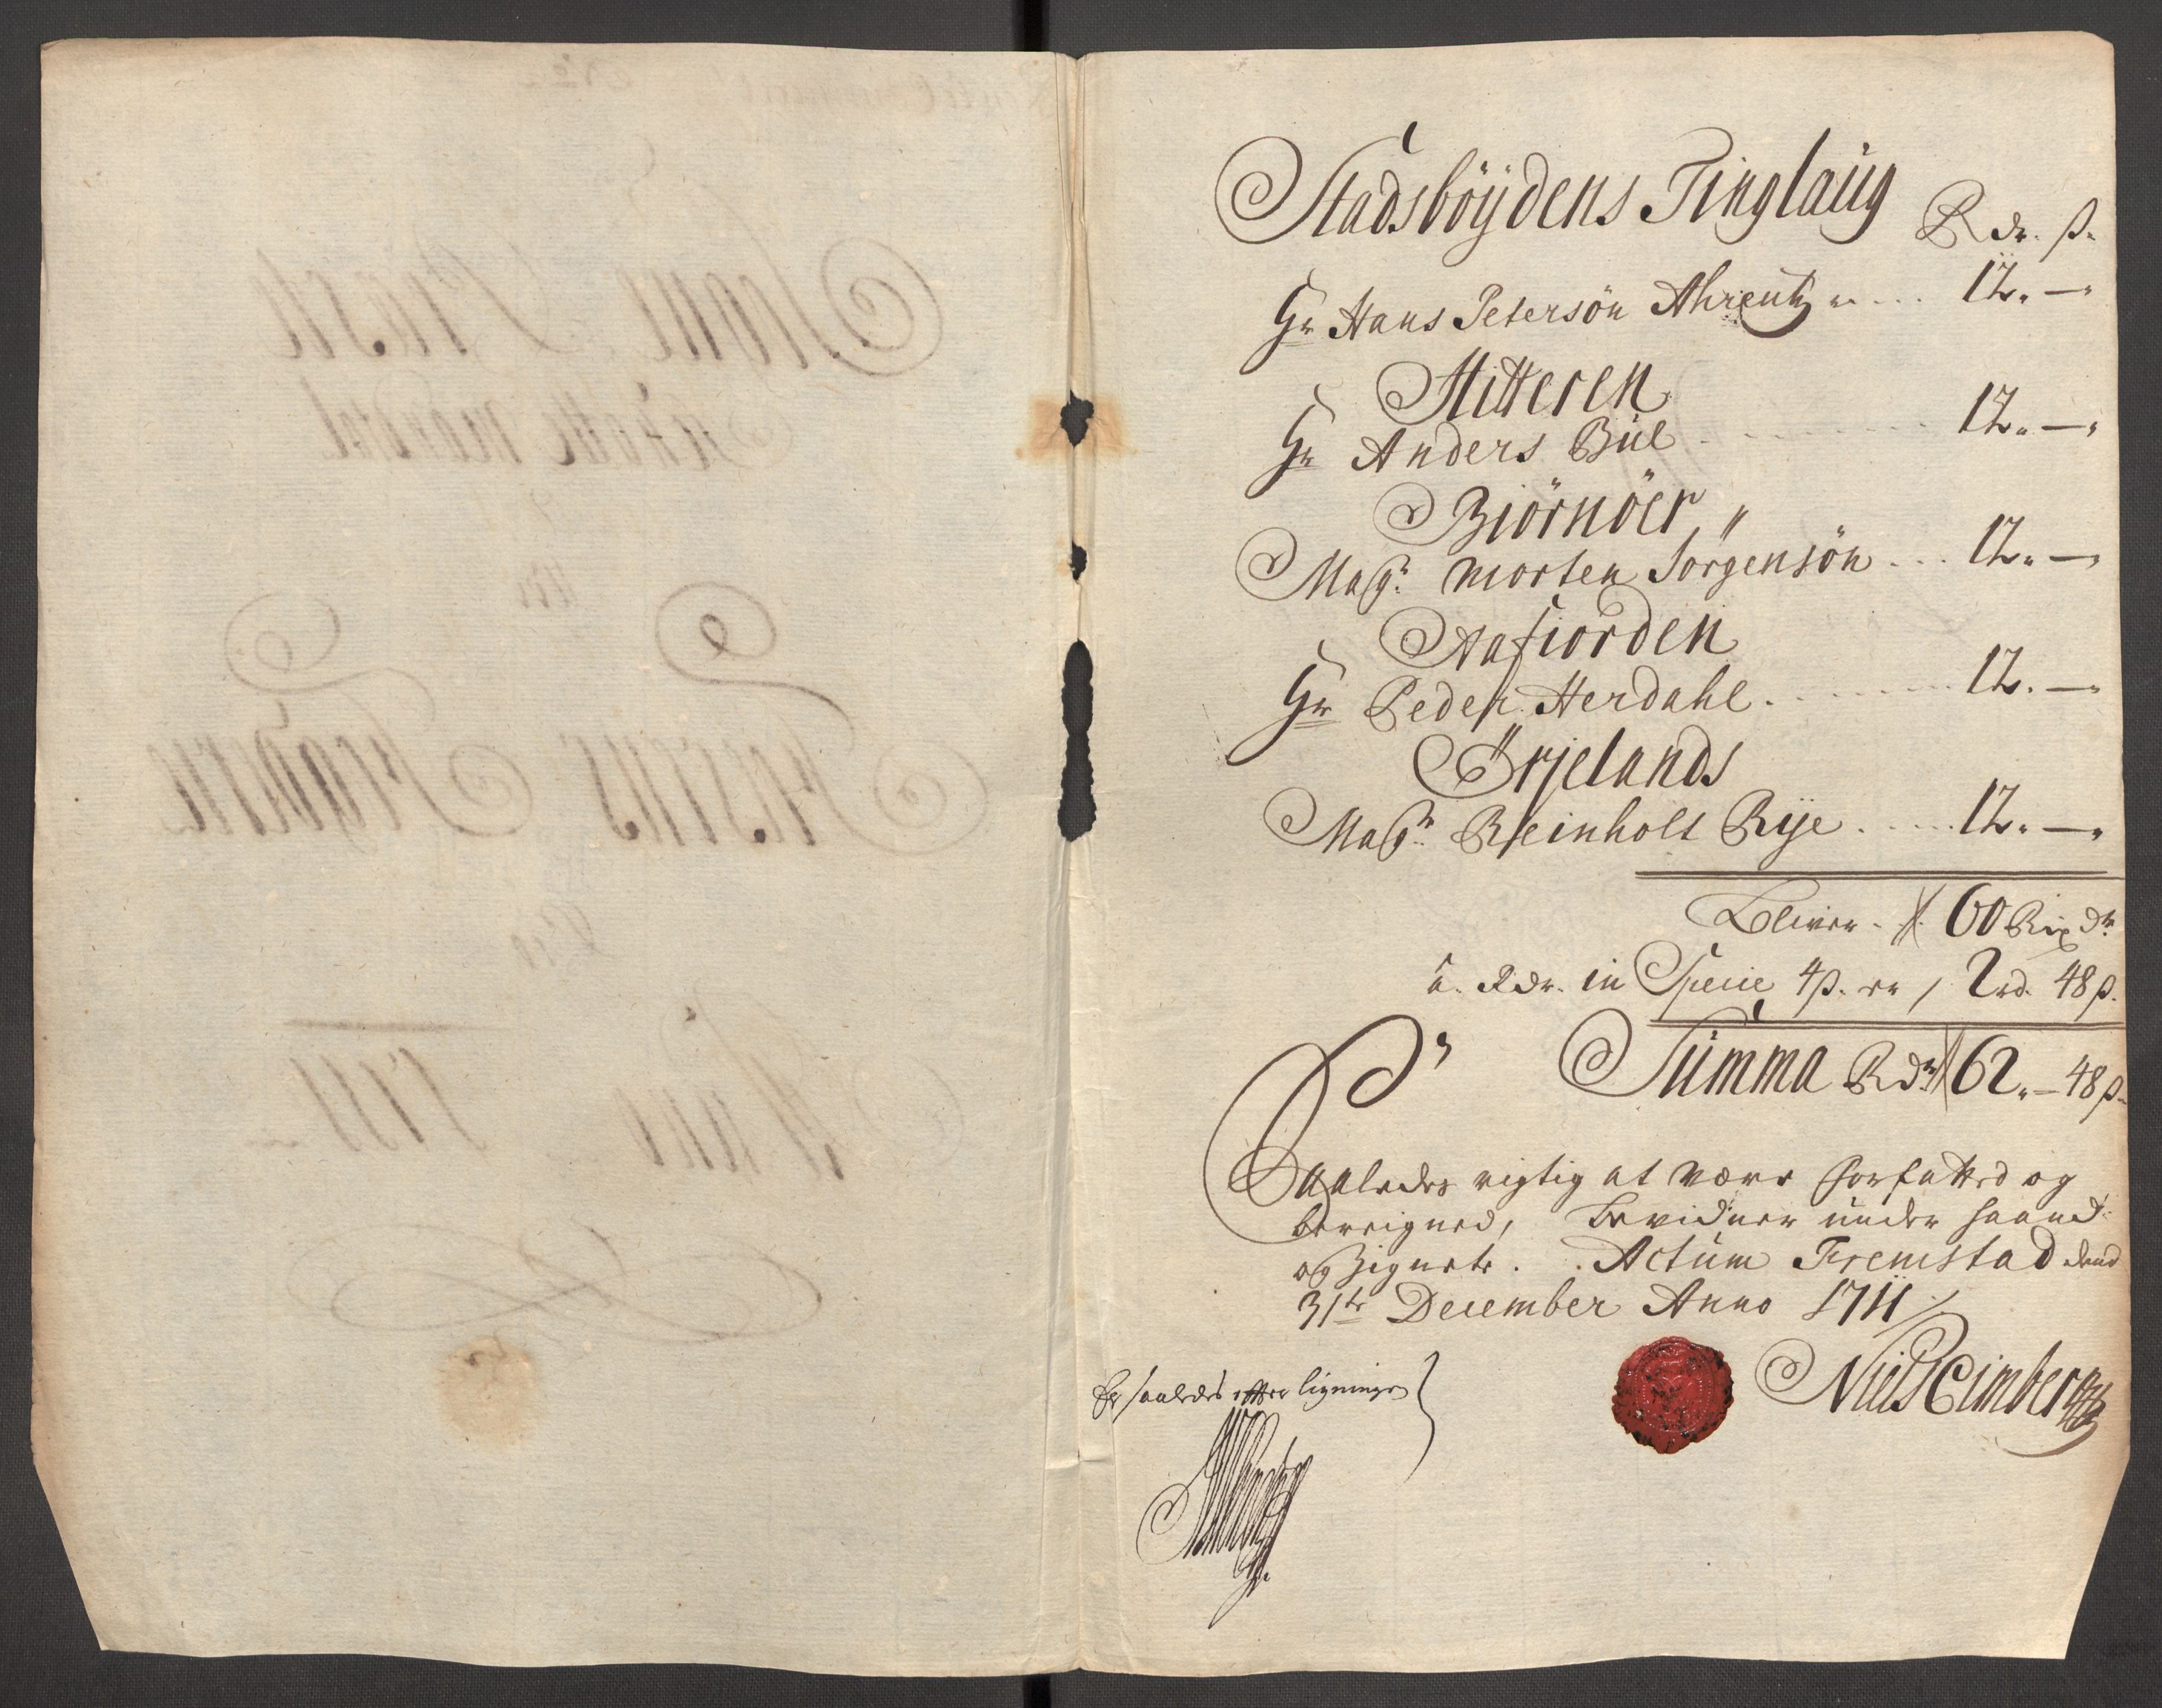 Stadsböÿdens Tinglaug
Rdr. ß.
Hr Hans Petersön Ahrentz ... 12. —
Hitteren
Hr Anders Buel ... 12. —
Biörnöer
Magr. Morten Jörgensön ... 12. —
Aafiorden
Hr Peder Herdahl ... 12. —
Örjelands
Magr. Reinholt Rÿe ... 12. —
Bliver 60 Rix dr
a. Rdr. in Specie 4 ß. er / 2 rd. 48 ß.
Summa Rdr 62. — 48 ß
Saaledes rigtig at være forfatted og
beregned, Bevidner under haand
og Zignete. Actum Fremstad dend
31te December Anno 1711
Niels Cimberg
Er saaledes efter ligningen